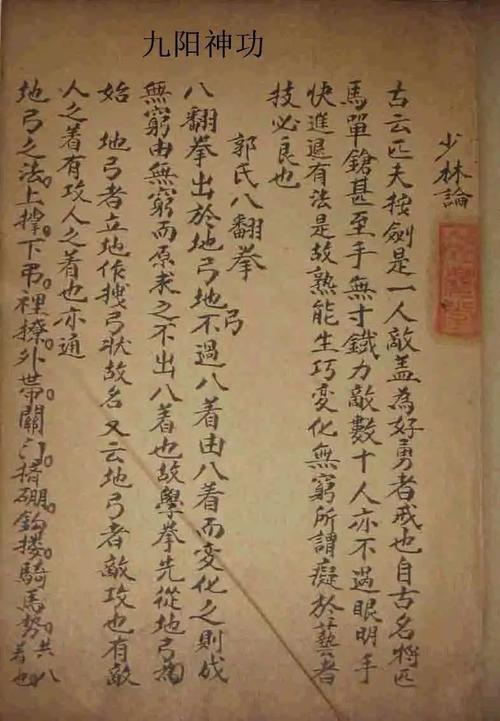 九阳神功
少林論
古云匹夫按劍是一人敵盖為好勇者戒也自古名将匹
馬單鎗甚至手無寸鐵力敵數十人亦不過眼明手
快進退有法是故熟能生巧變化無窮所謂癡於藝者
技必良也
郭氏八翻拳
八翻拳出於地弓地弓不過八着由八着而變化之則成
無窮由無窮而原求之不出八着也故學拳先從地弓為
始 地弓者立地作拽弓狀故名 又云地弓者敵攻也有敵
人之着有攻人之着也亦通
地弓之法上撑。下弔。裡撩。外帶。關门。揹硼。鈎摟。騎馬勢。共八着也